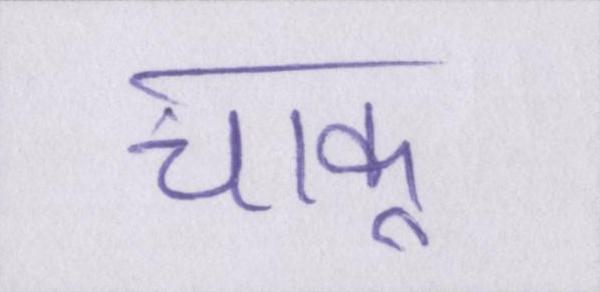 चाकू